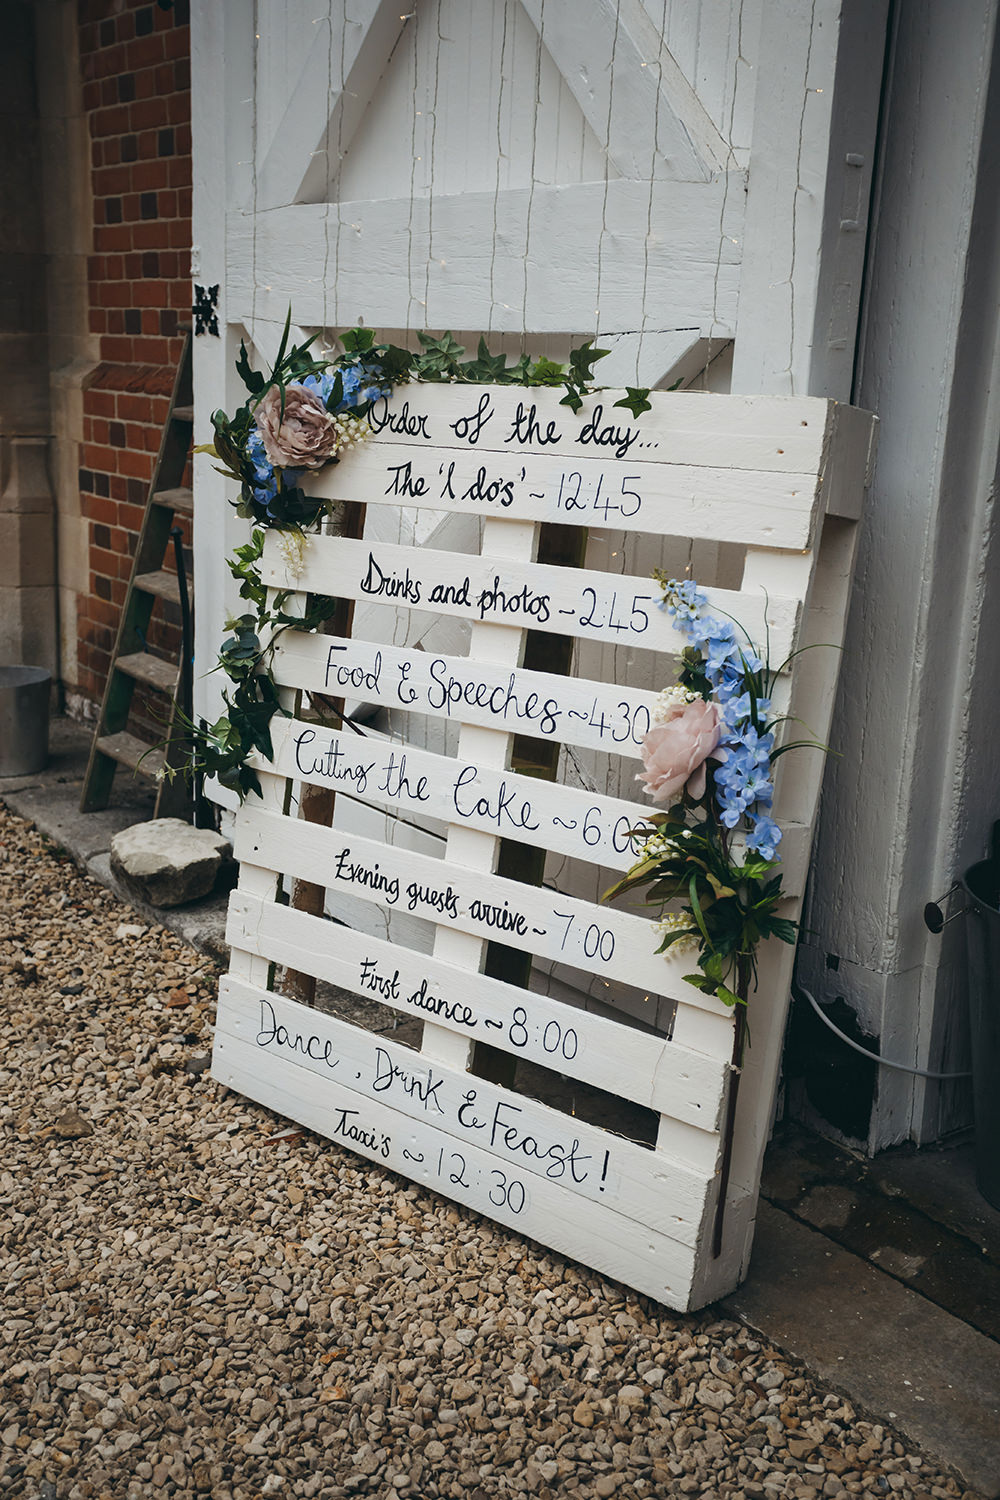 Order of the day...
The 'I do's' ~ 12:45
Drinks and photos ~ 2:45
Food & Speeches ~ 4:30
Cutting the Cake ~ 6:00
Evening guests arrive ~ 7:00
First dance ~ 8:00
Dance, Drink & Feast!
Taxi's ~ 12:30